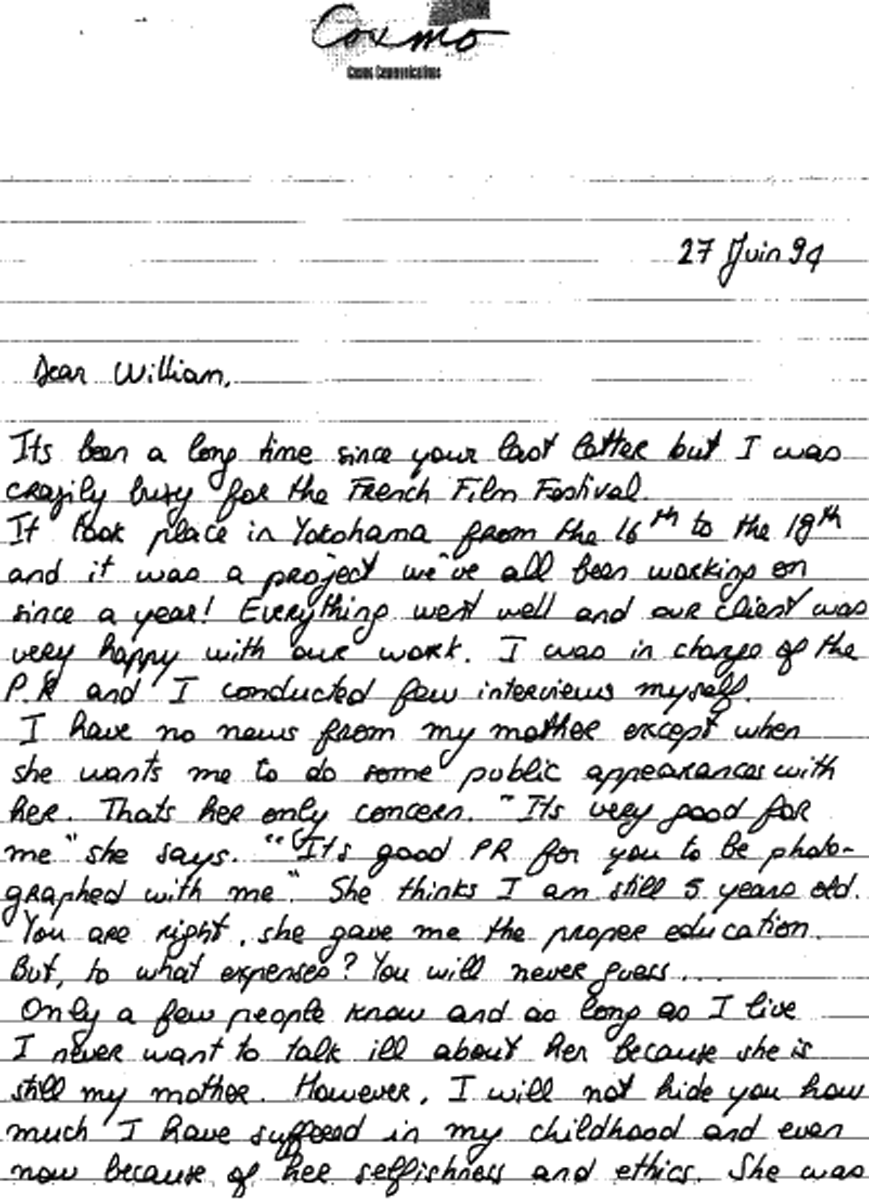 Cosmo
Cosmo Communications
27 Juin 94
Dear William,
Its been a long time since your last letter but I was
crazily busy for the French Film Festival.
It took place in Yokohama from the 16th to the 19th
and it was a project we've all been working on
since a year! Everything went well and our client was
very happy with our work. I was in charge of the
P.R and I conducted few interviews myself.
I have no news from my mother except when
she wants me to do some public appearances with
her. Thats her only concern. "Its very good for
me" she says. "It's good PR for you to be photo-
graphed with me". She thinks I am still 5 years old.
You are right, she gave me the proper education.
But, to what expenses? You will never guess....
Only a few people know and as long as I live
I never want to talk ill about her because she is
still my mother. However, I will not hide you how
much I have suffered in my childhood and even
now because of her selfishness and ethics. She was